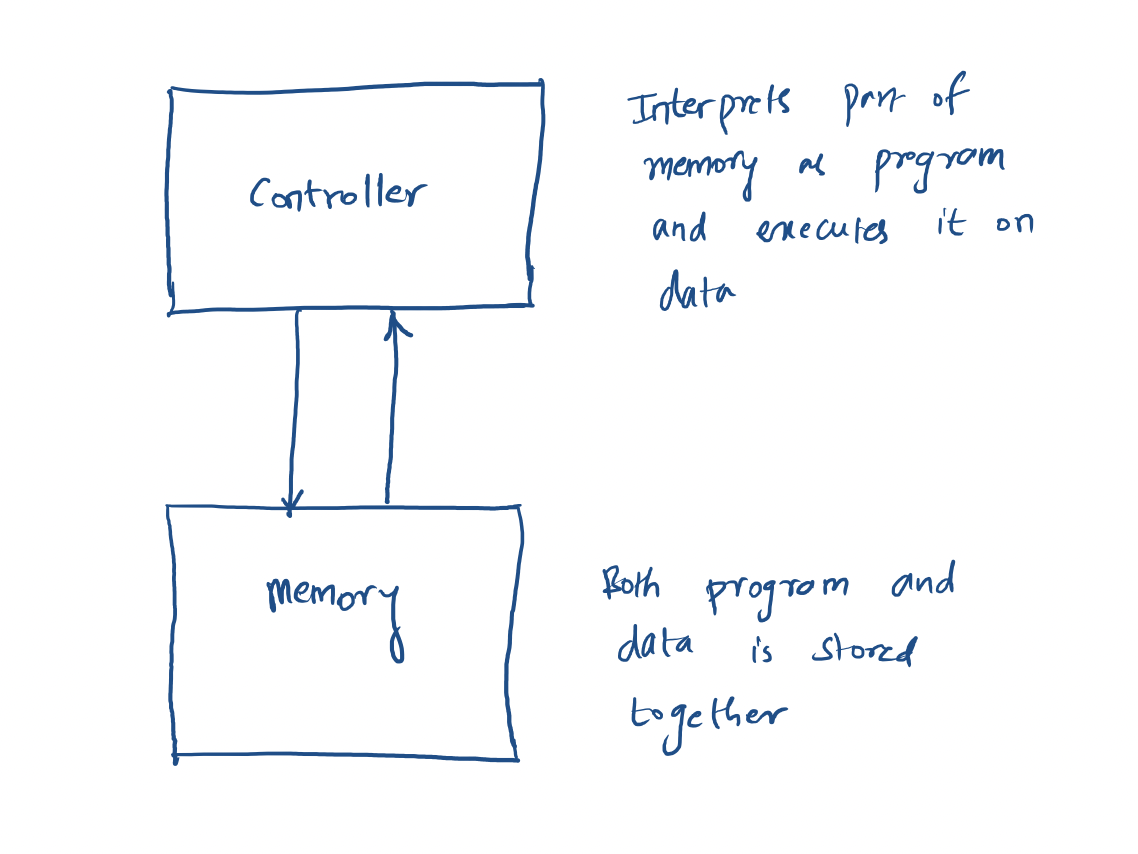 Controller
Interprets part of
memory as program
and executes it on
data
memory
Both program and
data is stored
together